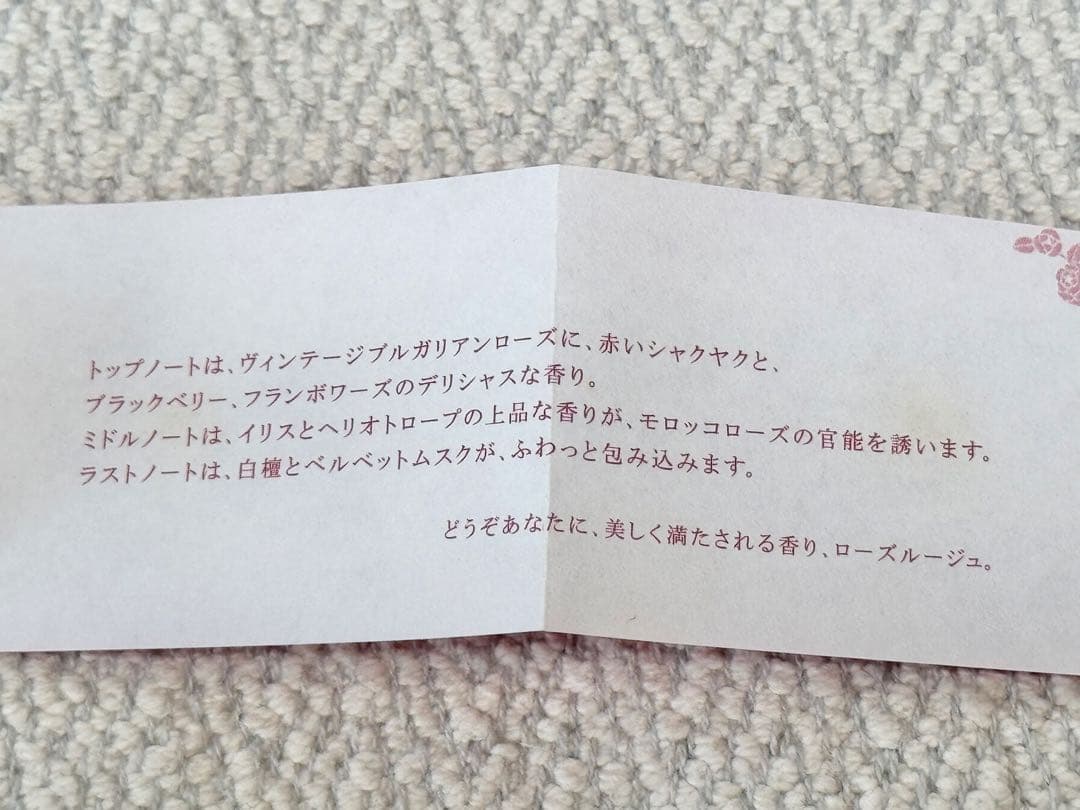 トップノートは、ヴィンテージブルガリアンローズに、赤いシャクヤクと、
ブラックベリー、フランボワーズのデリシャスな香り。
ミドルノートは、イリスとヘリオトロープの上品な香りが、モロッコローズの官能を誘います。
ラストノートは、白檀とベルベットムスクが、ふわっと包み込みます。
どうぞあなたに、美しく満たされる香り、ローズルージュ。